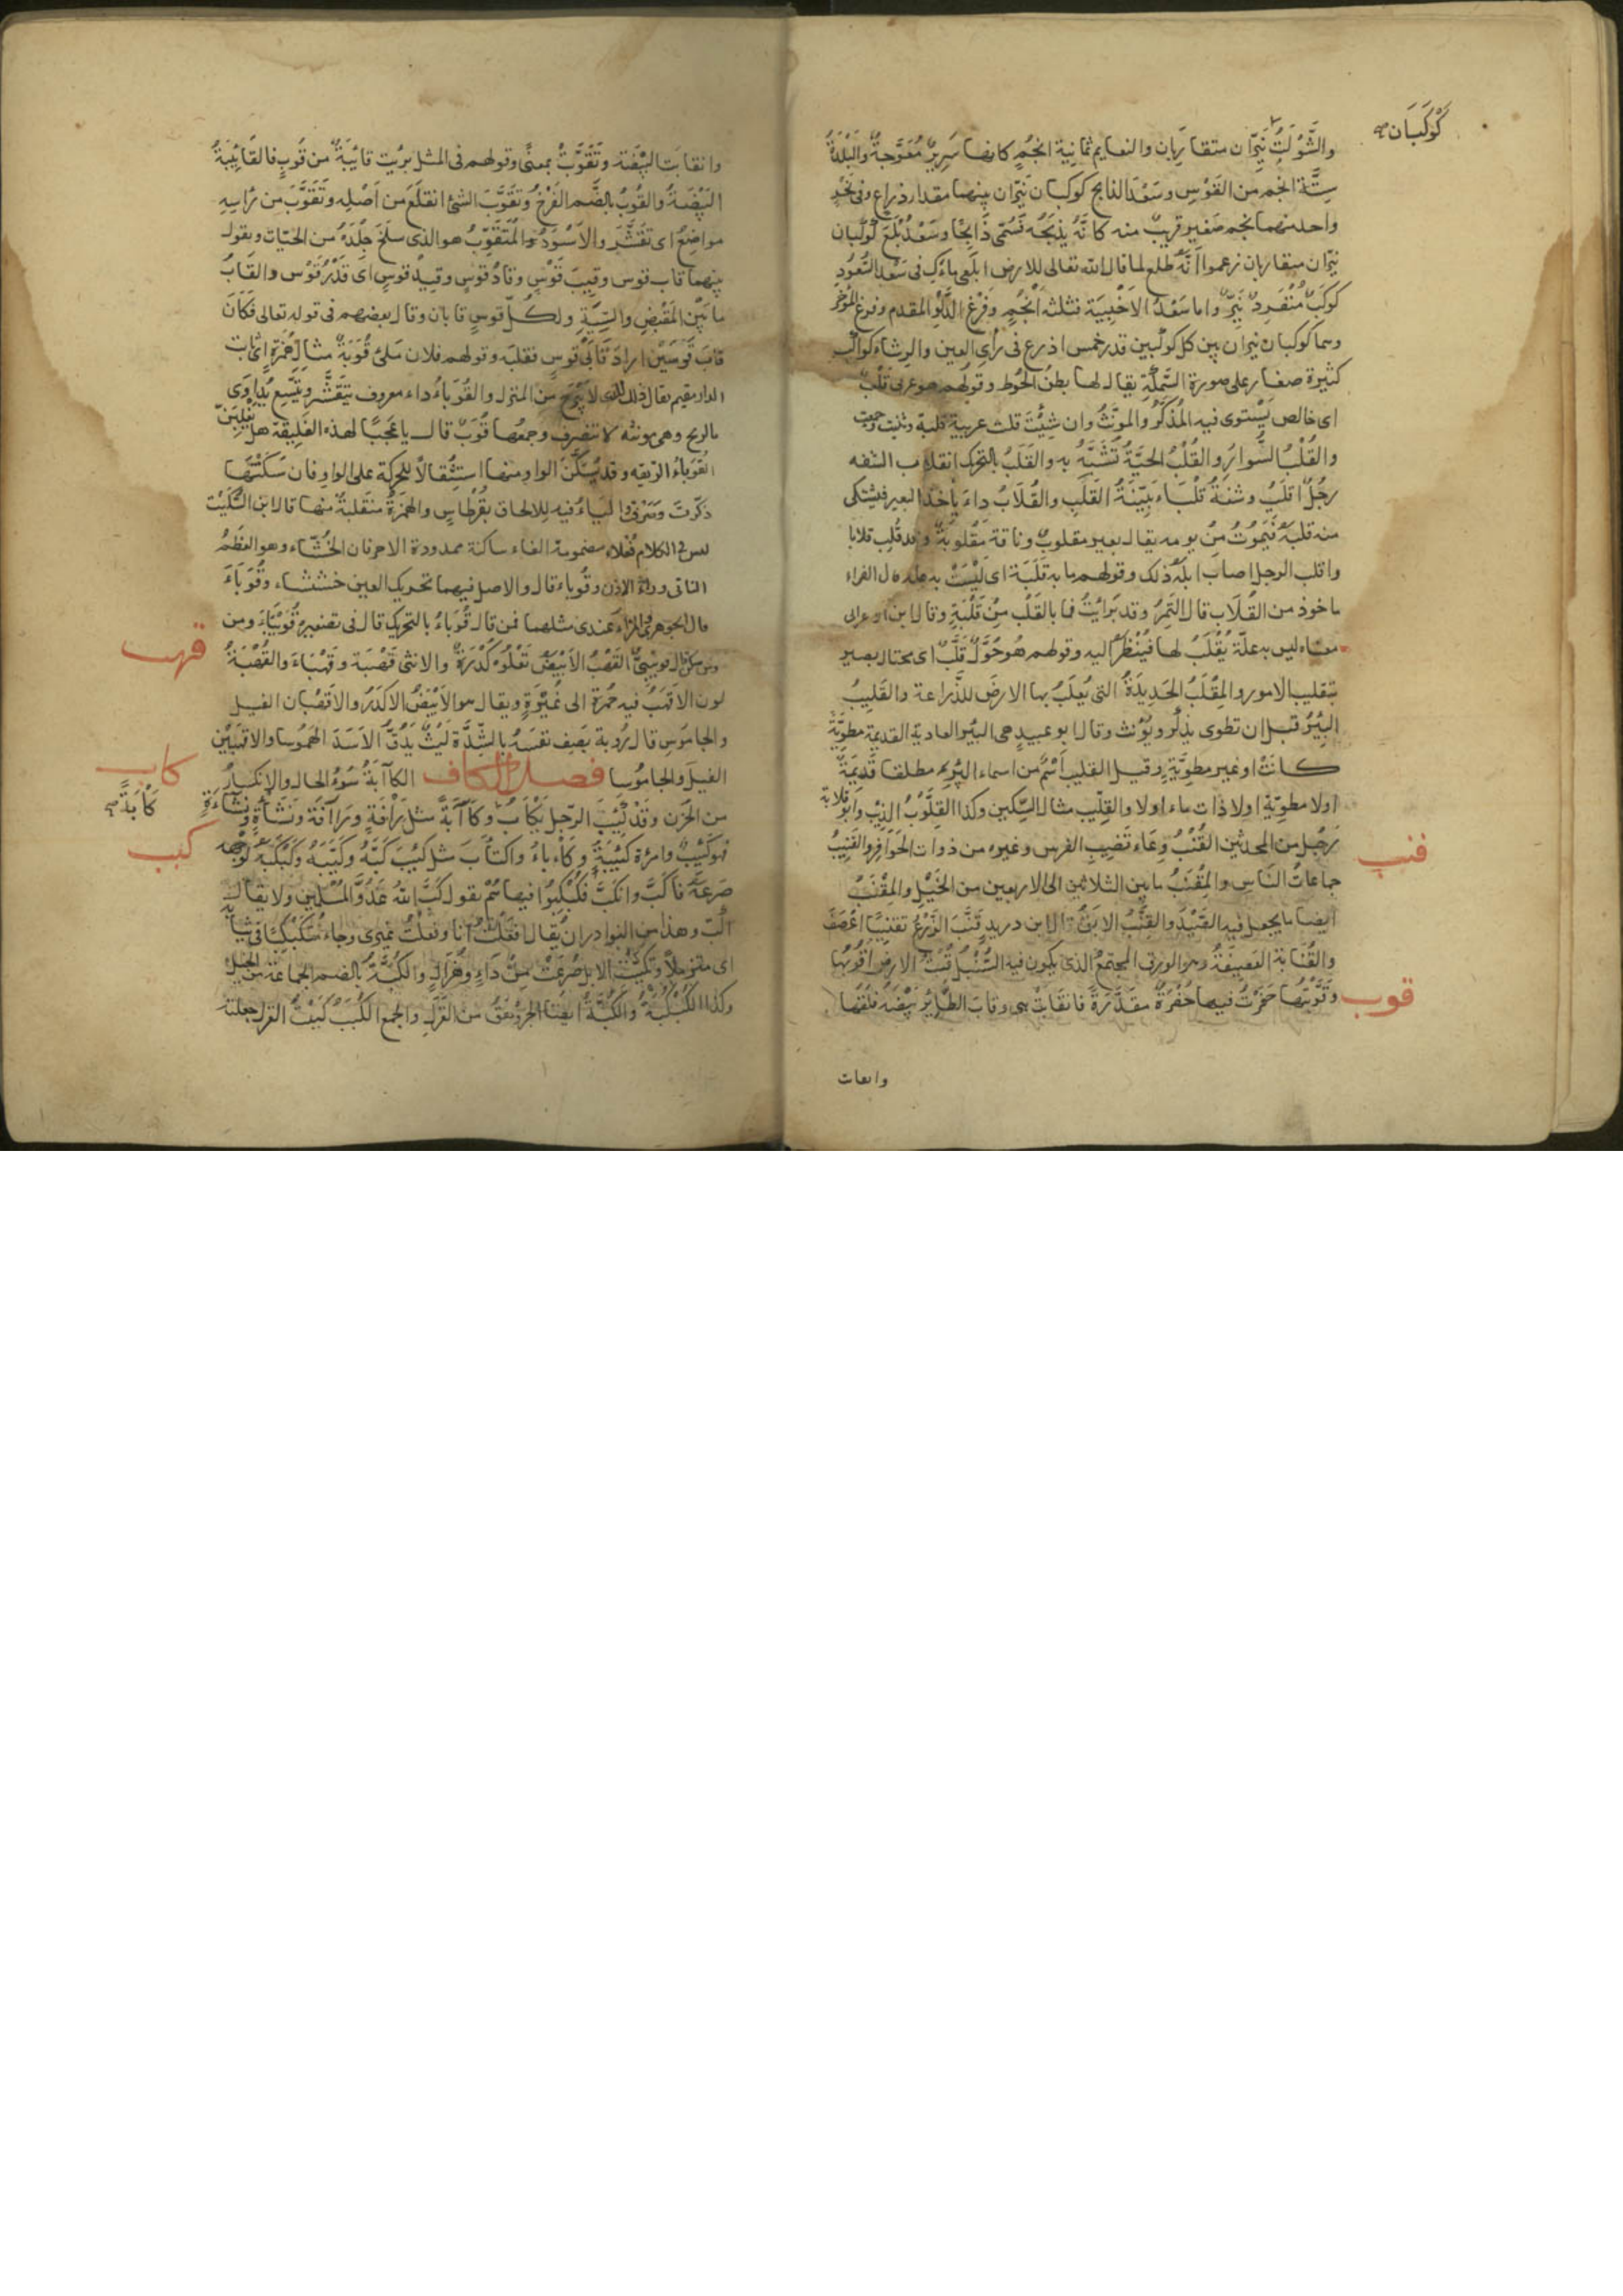 كَوْكَبَان صح
والشَّوْلَةُ نَيِّران متقاربان والنعايم ثمانية انجُمٍ كانها سَرِيرٌ مُعَوَّجةٌ والبَلْدَةُ
سِتَّة انجُم من القَوْسِ وسَعْدَ الذابح كوكبان نَيِّران بينهما مقدار ذراع وفي نَحْرِ
واحد منهما نجم صَغير قريبٌ منه كانَّهُ يَذبَحُه فَسُمّى ذَابِحًا وسَعْدُ بُلَعَ كَوْكَبان
نيّران متقاربان زعموا انَّهُ طلع لما قال الله تعالى للارض ابلَعِي ماءَكِ وفى سَعْد السُّعُودِ
كوكَبٌ مُنْفَرِدٌ نَيِّرٌ واما سَعْدُ الاَخْبِيَة فثلثة اَنْجُمٍ وَفَرْغ الدَّلْوِ المقدم وفرغ المُؤَخَّر
وهما كوكبان نيران بين كل كوكبين قدر خمس اذرع فى رأى العين والرِشاء كواكب
كثيرة صغار على صورة السَّمكَةِ يقال لها بطن الحُوت وقولهم هو عربى قَلْبٌ
اى خالص يَسْتوى فيه المُذَكَّرُ والموَنَّثُ وان شِئْتَ قلت عربية قلبة وثنيت وجمعت
والقُلْبُ السِّوارُ والقُلْبُ الحَيَّةُ تُشَبَّهُ به والقَلَبُ بالتحرك انقلاب الشفه
رجُلٌ اقلَبُ وشفةٌ قَلْبَاء بَيِّنَةُ القَلَبِ والقُلَابُ داءٌ يأخذ البعير فيشتكى
منه قلبَهُ فيَموتُ مِن يومه يقال بعير مقلوبٌ وناقة مَقْلوبَةٌ وقد قُلِب قلابا
واقلب الرجل اصاب ابلَهُ ذلك وقولهم ما به قَلَبَة اى ليْسَتْ به علة قال الفراء
ماخوذ من القُلَاب قال النَّمِرُ وقد بَرَاِيْتُ فما بالقَلْب مِنْ قَلَبَةِ وقال ابن الاعرابى
معناه ليس به علّة يُقْلَبُ لها فَيُنْظَرُ اليه وقولهم هُو حُوَّلٌ قُلَّبٌ اى محتال بصير
بتقليب الامور والمِقْلَبُ الحَدِيدَةُ التى يُقلَبُ بها الارضَ للزَّراعة والقَلِيبُ
البِئرُ قبل ان تطوى يذكّر ويُؤنث وقال ابو عبيدٍ هى البئر العادية القديمة مطوِيَّةً
كانت او غير مطوِيَّةٍ وقيل القليب اسْمٌ من اسماء البِئرِ مطلقا قَديمَةً
اولا مطوِيّة اولا ذات ماء اولا والقِلِّيب مثال السِّكين وكذا القِلَّوْبُ الذِئب وابو قلابة
رَجُل من المحدثين القُنْبُ وِعَاء قَضِيبِ الفرس وغيره من ذوات الحَوَافِر والقَنِيبُ
قنب
جماعاتُ النَاس والمِقْنَبُ ما بين الثلاثين الى الاربعين من الخَيْلِ والمِقْنَبُ
ايضا ما يجعل فيه الصَّيْدَ والقِنَّبُ الابقُ قال ابن دريد قَنَّبَ الزَّرْعُ تقنيبًا اعْصَفَ
والقُنَّابة العَصِيفَةُ وهو الورق المجتمعُ الذى يكون فيه السُّنْبُل قُبْتُ الارضَ اقُوبُها
قوب
وَقَوَّبْتُها حَفَرْتُ فيها حُفْرَةً مقدَّرَةً فانقابَتْ هى وقابَ الطَّايِرُ بَيْضَهُ فَلَقَها
وانقابت
وانقابَت البَيْضَة وتَقَوَّبَتْ بمعنًى وقولهم فى المثل بَرِئت قايِبَةٌ من قُوبٍ فالقايِبَةُ
البَيْضَةُ والقُوبُ بالضَّم الفَرْخُ وتَقَوَّبَ الشئ انقلَعَ من اَصْلِه وتَقَوَّبَ من رَاسِهِ
مواضعُ اى تقشَّرَ والاَسْوَدُ المُتَقَوِّبُ هو الذى سلخ جِلْدَهُ من الحيّات ويقول
بينهما قاب قوس وقِيبَ قَوْسٍ وقادُ قوس وقِيدُ قوسٍ اى قَدْرُ قَوْس والقَابُ
ما بَيْنَ المَقْبِضِ والسِّيَةِ ولكُلّ قوسٍ قابان وقال بعضهم فى قوله تعالى فَكَانَ
قابَ قَوْسَيْنِ اراد قَابَىْ قوسٍ فقلبَه وقولهم فلان مَلِئٌ قُوَبَةٌ مثال هُمَزَةٍ اى ثابت
الدار مقيم يقال ذلك للذى لا يَبْرَحُ مِن المنزل والقُوَبَاءُ داء معروف يَتَقَشَّر ويَتَّسِع يُدَاوَى
بالريح وهى مونثه لا تنصرف وجمعُها قُوَبٌ قال يا عَجَبًا لهذه الفَلِيقَة هل تَغْلِبَنَّ
القُوَبَاءُ الرِّيقَه وقد يُسَكَّنُ الواو منها استِثْقالاً للحركة على الواو فان سَكَنْتَها
ذكّرتَ وصَرَفْتَ والياءُ فيه للالحاق بقُرْطَاسٍ والهمَزةُ منقلبةٌ منها قال ابن السِّكيت
ليس فى الكلام فُعْلاء مضمومة الفاء ساكنة ممدودة الا حرفان الخُشَّاء وهو العَظمُ
الناتى وراءَ الاذن وقُوباء قال والاصل فيهما تحريك العين خُشَشاء وقُوَبَاءَ
قال الجوهرى والمُزاء عندى مثلهما فمن قال قُوَبَاءُ بالتحريك قال فى تصغيره قُوَيْبَاءَ ومن
قهب
ومن سكن قال قويبىٌّ القَهْبُ الاَبْيَضُ تَعْلُوه كُدْرَةٌ والانثى قَهْبَة وقَهْباءَ والقُهْبَةُ
لون الاقهَبُ فيه حُمرَة الى غُبْرَةٍ ويقال هو الاَبْيَضُ الاكدَرُ والاقهَبان الفيل
والجاموس قال رُوبة يَصِف نفسَهُ بالشِّدَّة لَيْثٌ يَدُقُّ الاسَدَ الهَمُوسا والاقهَبَيْن
الفيلَ والجامُوسا فصل الكاف الكاآبَةُ سُوءُ الحال والانكسارُ
كاب
كَاْبَةً صح
من الحُزن وقد كَئِبَ الرّجل يَكْأبُ وكَآبَةً مثل رَاْفَةٍ ورَاآفَة ونَشْأَةٍ ونَشاءَةٍ
كبب
فهو كَئيبٌ وامرَءة كئيبَةٌ وكأباءُ واكتأَبَ مثل كَئِبَ كَبَّهُ وكَبَّبَهُ وكَبْكَبَهُ لِوَجهه
صَرعَهُ فاكَبَّ وانكَبَّ فكُبْكِبُوا فيها ثم يقول كَبَّ اللهُ عَدُوَّ المُسْلمين ولا يقال
اكبّ وهذا من النوادر ان يُقال افعَلْتُ انا وفعلتُ غيرى وجاء مُتَكَبكِبًا فى ثيابه
اى متزملاً وتَكَبَّبَت الابل صُرِعَتْ مِنْ دَاءٍ وهُزَالٍ والكُبَّةُ بالضم الجماعة من الخيل
وكذا الكُبْكُبَةُ والكُبَّةُ ايضا الجرَوْهَقُ من الغَزْلِ والجمع الكُبَبُ كَبَبْتُ الغزل جعلته